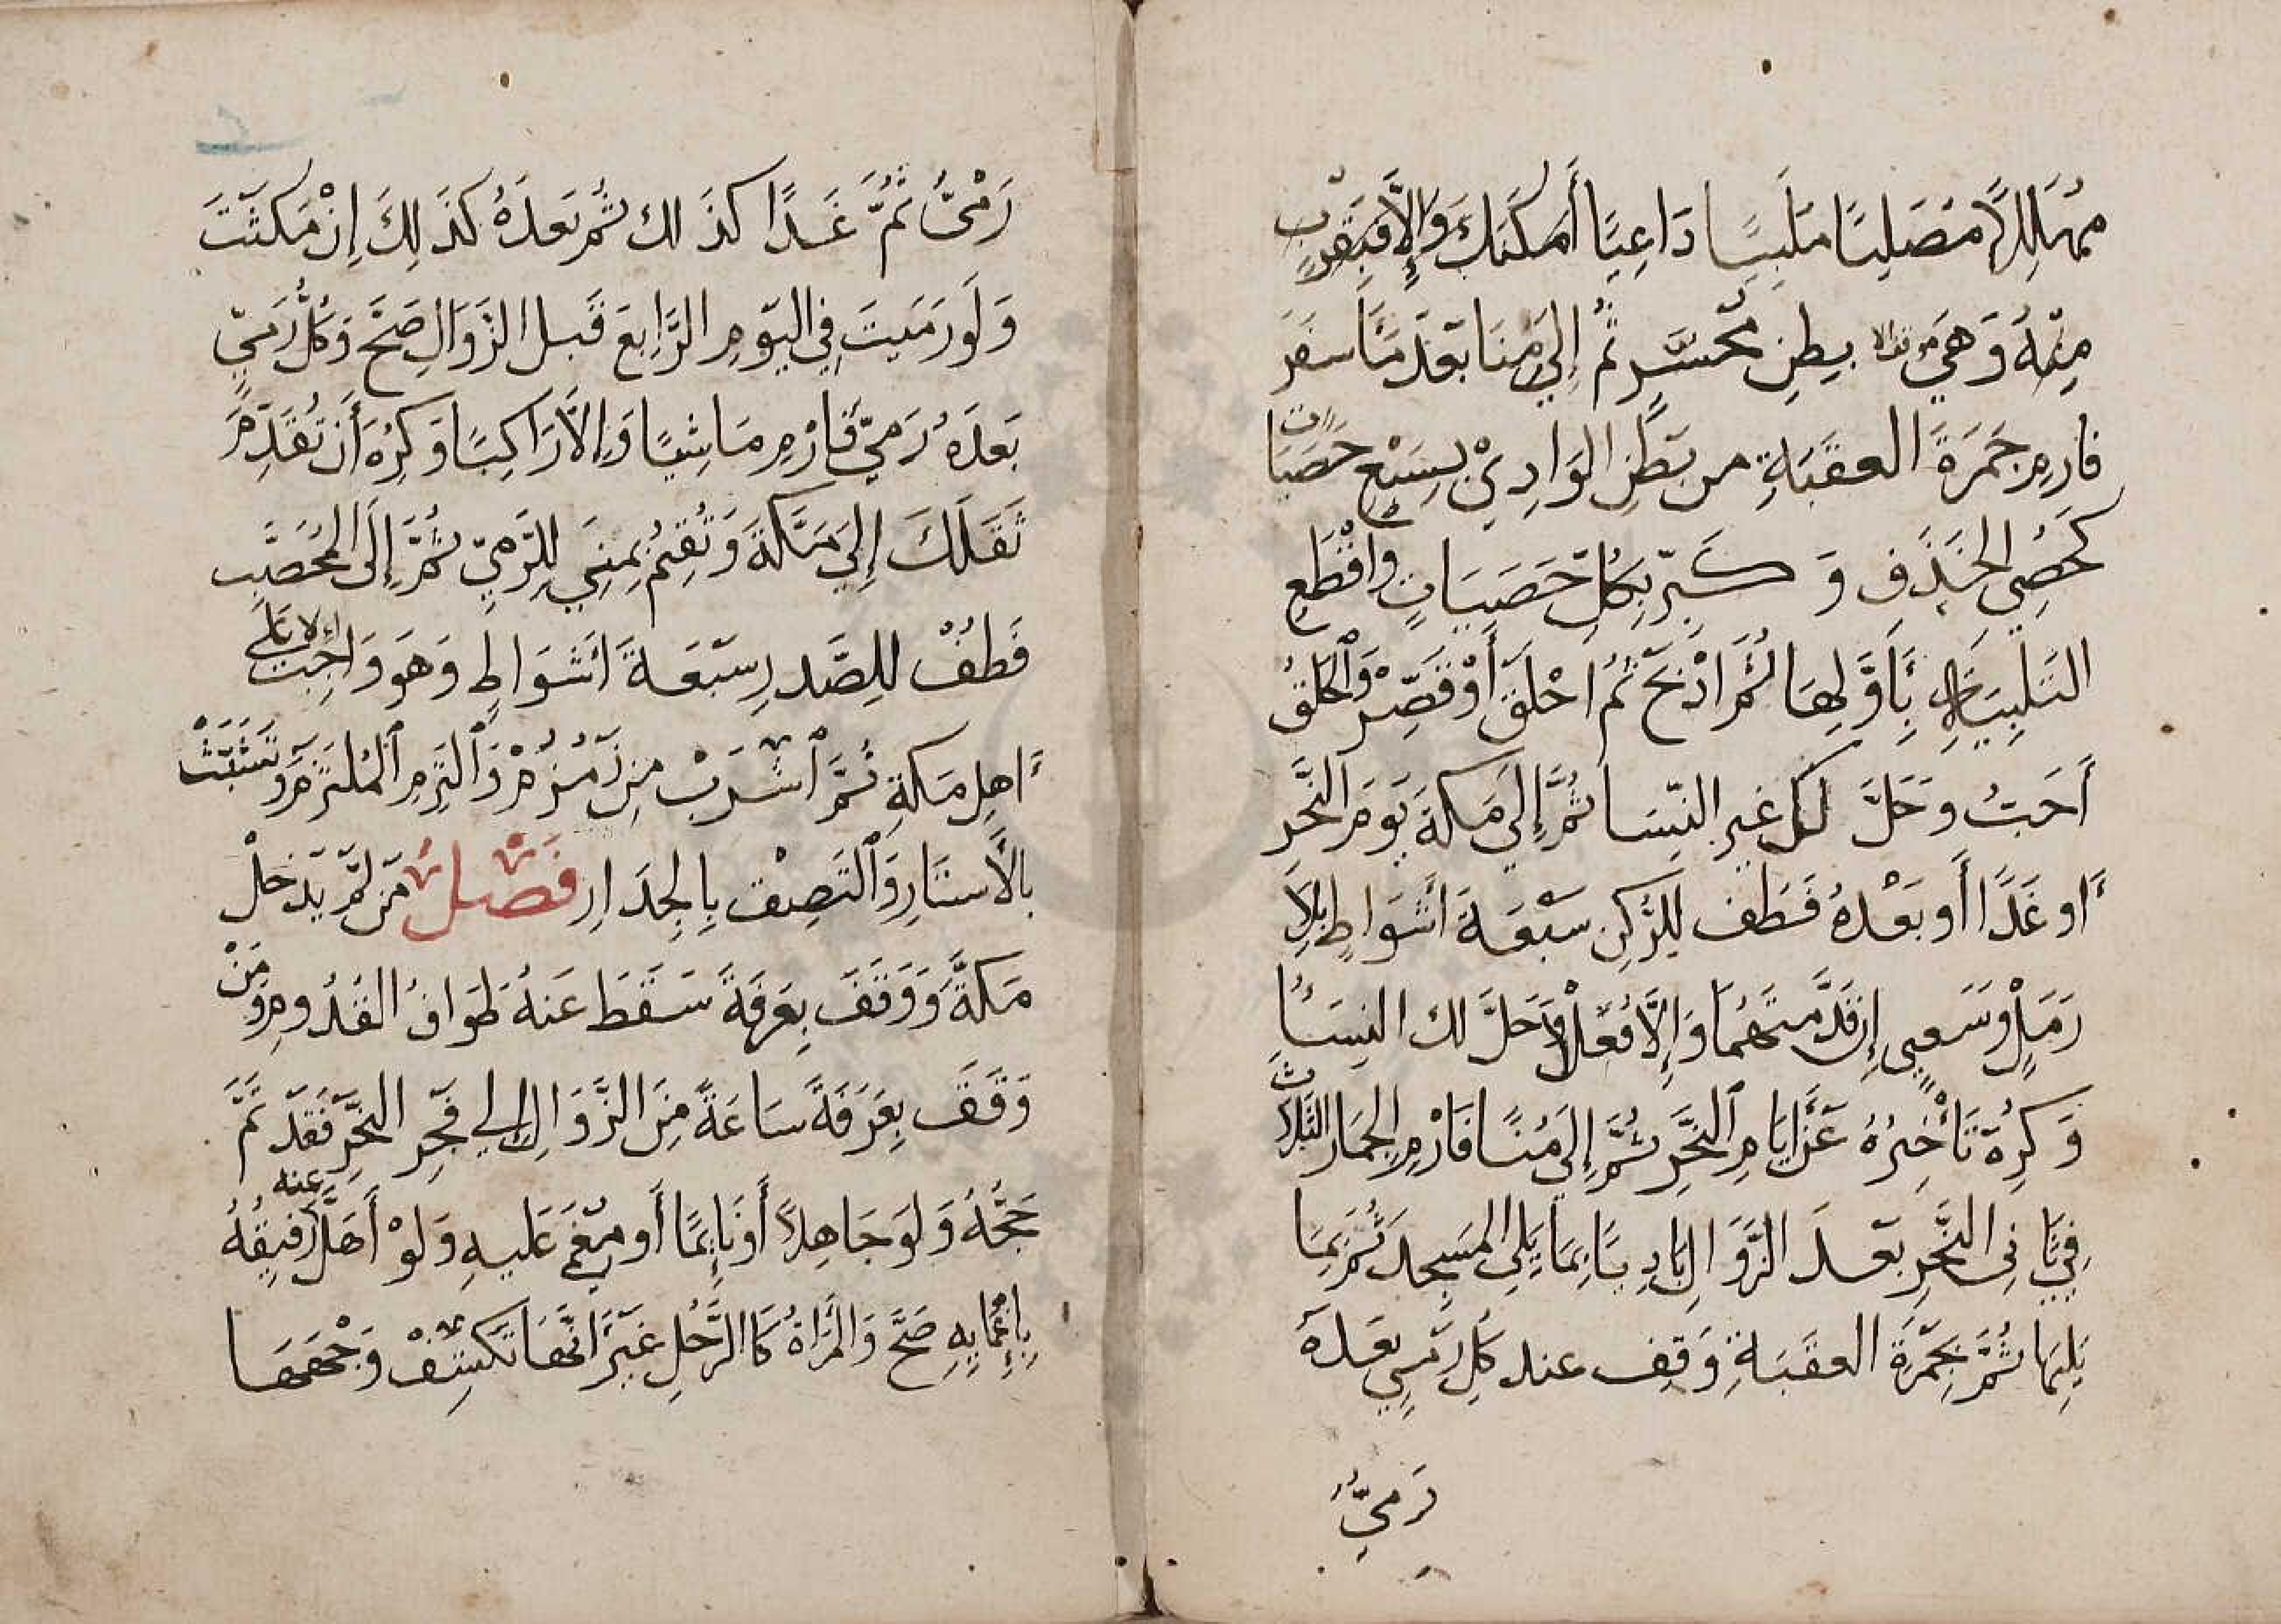 مُهَلِلاً مُصَلِيًا مُلَبِيًا دَاعِيًا أَمكَنَكَ وَإِلَّا فَبِقُرْبٍ
مِنهُ وَهِيَ موقف الا بِطنِ مُحَسَّرٍ ثُمَّ إِلَى مِنَا بَعْدَ مَا سَفَرَ
فارمِ جَمْرَةَ العقَبَةِ من بَطْنِ الوَادِيْ بِسَبْعِ حَصَيَاتٍ
كَحَصَى الخَذَفِ وَكَبِّر بِكُلِّ حَصَيَاتٍ وَاقْطَعِ
التَلبِيَةِ بِأَوَّلِهَا ثُمَّ اذْبَحْ ثُمَّ احْلَقْ أَوْ قَصِّرْ وَالحَلَقُ
أَحَبُّ وَحَلَّ لَكَ غيرِ النِّسَا ثُمَّ إِلَى مَكَةَ يَومَ النَّحْرِ
أَو غَدًا أَو بَعْدَهُ فَطَف لِلرُّكنِ سَبْعَةَ اَشْوَاطٍ بِلَا
رَمَلٍ وَسَعيٍ إِن قَدَّمتَهُمَا وَإِلَّا فُعِلَا وَحَلَّ لك النِسَا
وَكُرِهَ تَأْخِيرُهُ عَنْ ايَامِ النَّحْرِ ثُمَّ إِلَى مُنًا فَارْمِ الجِمَارَ الثَّلَاثَ
فِي ثَانِى النَّحْرِ بَعْدَ الزَّوَالِ بَادِيًا بِمَا يَلِى المَسجِدَ ثُمَّ بِمَا
يَلِيهَا ثُمَّ بِجَمْرَةَ العقَبَةِ وَقِف عند كُلِّ رَمْيٍ بَعدَهُ
رَمْيٌ
رَمْىٌ ثُمَّ غَدًا كَذَلك ثُمَّ بَعدَهُ كَذَلِكَ إِنْ مَكَثْتَ
وَلَو رَمَيتَ فِى اليَومِ الرَّابِعَ قَبل الزَّوَالِ صَحَّ وَكُلُّ رَمْيٍ
بَعدَهُ رَمْيٌ فَارْمِ مَاشِيًا وَإِلَّا رَاكِبًا وَكُرِهَ أَن تُقَدِمَ
ثَقَلَكَ إِلَى مَكَةَ وَتُقِيمُ بِمِنِي لِلرَّمْيِ ثُمَّ إِلَى المُحَصَّبِ
فَطُفْ لِلصَّدرِ سَبْعَةَ اَشْوَاطٍ وَهَوَ وَاجِبٌ إلا عَلَى
اَهلِ مَكَةِ ثُمَّ اشْرَبْ مِن زَمْزُمْ وَالتَزِمِ المُلتَزَمَ وَتَشَبَّثْ
بالأَستَارِ وَالتَصِقْ بِالجِدَارِ فَصْلٌ مَن لَم يَدْخُلْ
مَكَةَ وَوَقَفَ بِعَرَفَةَ سَقَطَ عَنهُ طَوَافُ القُدُومِ وَمَنْ
وَقَفَ بِعَرَفَةَ سَاعَةً مِنَ الزَّوَالِ إلي فَجرِ النَّحْرِ فَقَد تَمَّ
حَجُّهُ وَلَو جَاهِلاً أَو نَايِمًا أَو مُغمَى عَلَيهِ وَلَوْ أَهَلَّ عنه رَفِيقُهُ
بِاِغْمَايِهِ صَحَّ وَالمَرْاَةُ كَا الرَّجُلِ غَيْرَ اَنَّهَا تَكْشِفْ وَجْهَهَا